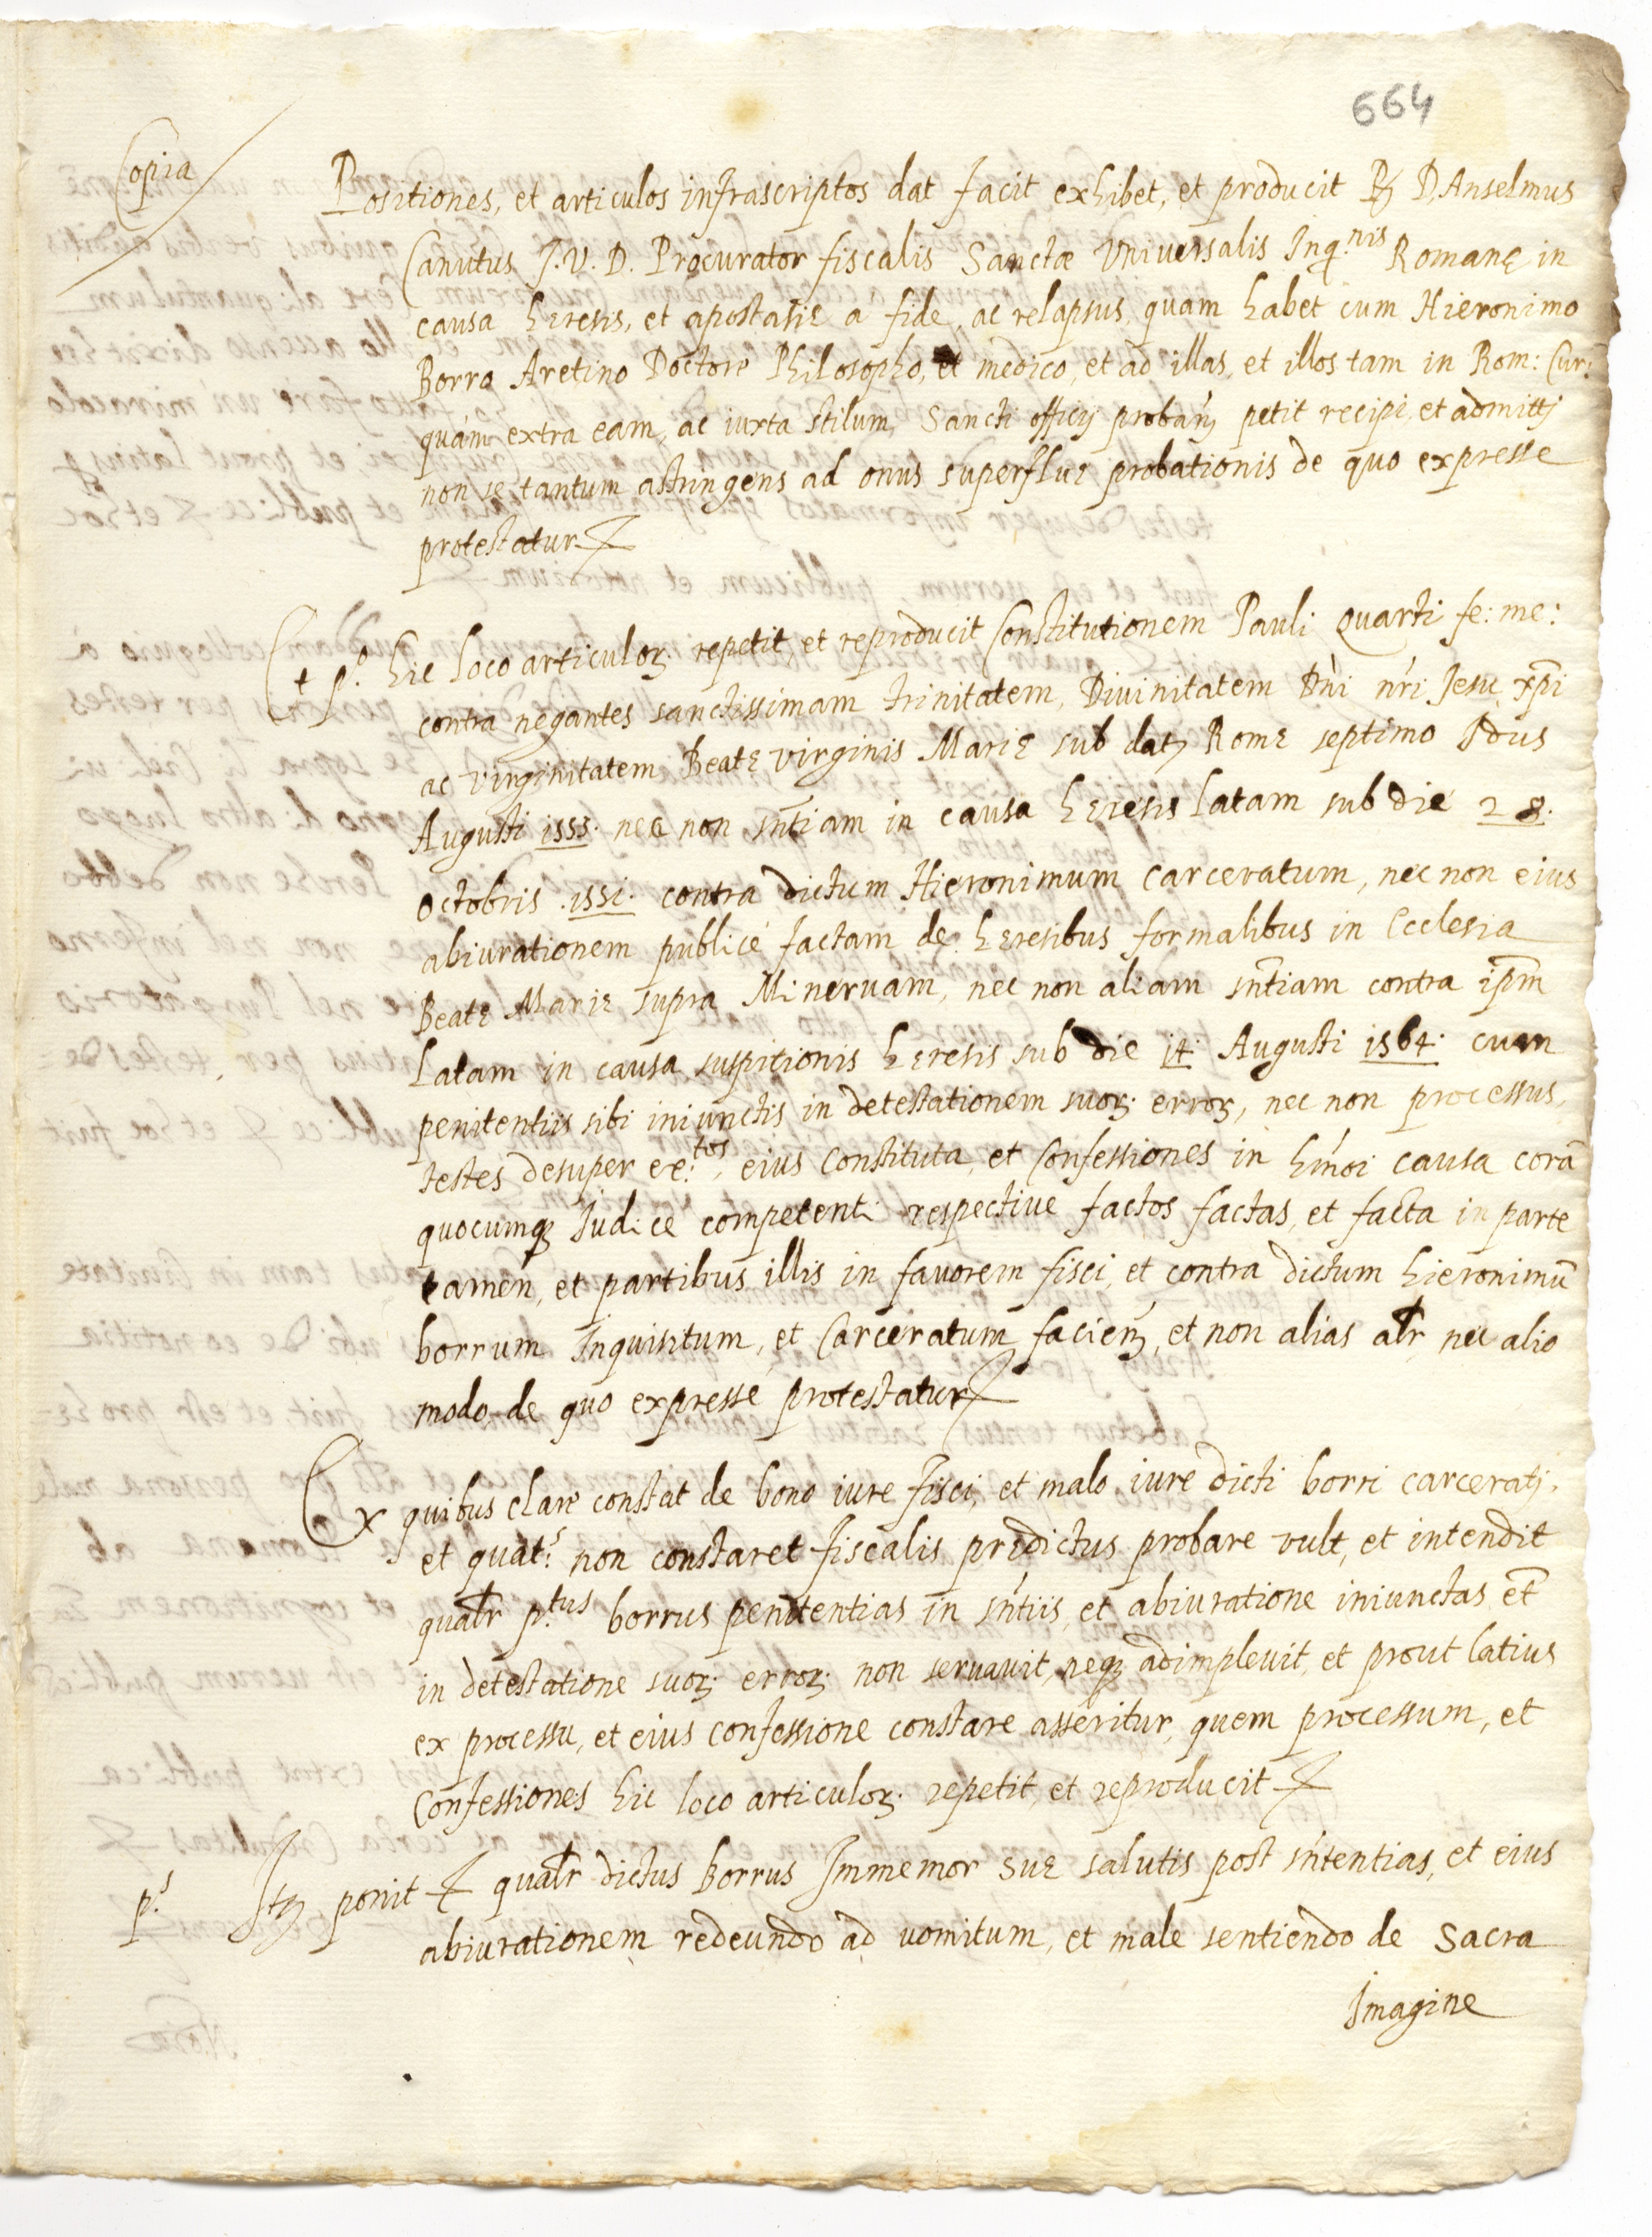 664
Copia
Positiones, et articulos infrascriptos dat facit exhibet, et producit D. Anselmus
Canutus J. V. D. Procurator fiscalis Sanctæ Universalis Inq.nis Romanę in
causa hęresis, et apostasię a fide, ac relapsus, quam habet cum Hieronimo
Borro Aretino Doctore Philosopho, et medico, et ad illas, et illos tam in Rom: Cur:
quam extra eam, ac iuxta stilum, Sancti officij proban̄ petit recipi, et admitti
non se tantum astringens ad onus superfluę probationis de quo expresse
protestatur
+ p.o hic loco articulorꝫ repetit, et reproducit Constitutionem Pauli Quarti fe: me:
contra negantes sanctissimam trinitatem, Divinitatem Dn̄i nr̄i Jesu xp̄i
ac virginitatem Beatę virginis Marię sub datꝫ Romę septimo Idus
Augusti 1555. nec non sn̄tiam in causa hęresis latam sub die 28.
Octobris .1551. contra dictum Hieronimum carceratum, nec non eius
abiurationem publicè factam de hęresibus formalibus in Ecclesia
Beatę Marię supra Mineruam, nec non aliam sn̄tiam contra ip̄m
Latam in causa suspitionis hęresis sub die 14. Augusti 1564. cum
penitentiis sibi iniunctis in detestationem suorꝫ errorꝫ, nec non processus,
testes desuper ee:tos, eius constituta, et Confessiones in hm̄oi causa corā
quocumqꝫ Iudice competenti respectiue factos factas, et facta in parte
tamen, et partibus illis in fauorem fisci, et contra dictum hieronimū
borrum Inquisitum, et Carceratum facien̄, et non alias alr̄, nec alio
modo, de quo expresse protestatur
Ex quibus clare constat de bono iure fisci, et malo iure dicti borri carcerati,
et quat.s non constaret fiscalis prędictus probare vult, et intendit
qualr̄ p.tus borrus penitentias in sn̄tiis, et abiuratione iniunctas et̄
in detestatione suorꝫ errorꝫ non seruauit, neqꝫ adimpleuit, et prout latius
ex processu, et eius confessione constare asseritur, quem processum, et
Confessiones hic loco articulorꝫ repetit, et reproducit
p.s Itꝫ ponit qualr̄ dictus Borrus Immemor suę salutis post sn̄tentias, et eius
abiurationem redeundo ad uomitum, et male sentiendo de Sacra
Imagine